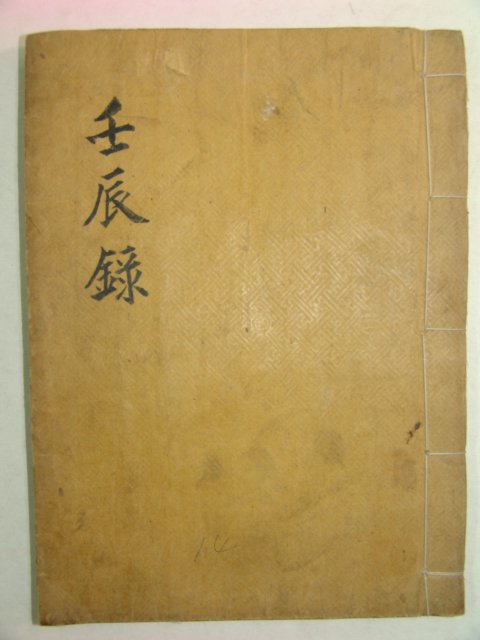 壬辰錄
14